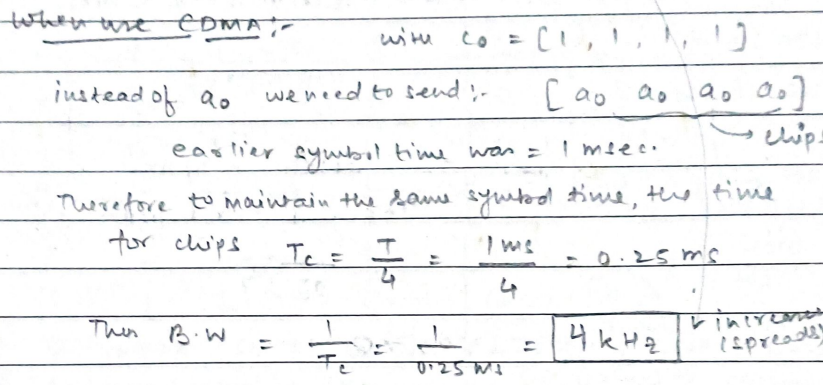 When we use CDMA :-
with c0 = [1, 1, 1, 1]
instead of a0 we need to send :- [a0 a0 a0 a0]
→ chips
earlier symbol time was = 1 msec.
Therefore to maintain the same symbol time, the time
for chips Tc = T/4 = 1 ms/4 = 0.25 ms
Then B.W = 1/Tc = 1/0.25 ms = 4 kHz increases (spreads)